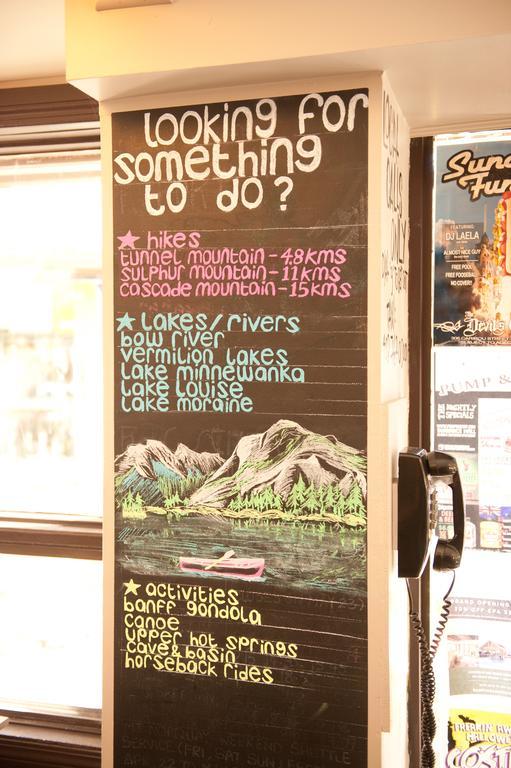 looking for
something
to do?
★ hikes
tunnel mountain - 4.8kms
sulphur mountain - 11kms
cascade mountain - 15kms
★ lakes/rivers
bow river
vermilion lakes
lake minnewanka
lake louise
lake moraine
★ activities
banff gondola
canoe
upper hot springs
cave & basin
horseback rides
LOCAL
CALLS
ONLY
FEATURING
DJ LAELA
ALMOST NICE GUY
FREE POOL
FREE FOOSBALL
NO COVER!!
The Devil's
PUMP &
NIGHTLY
SPECIALS
GRAND OPENING
FREAKIN' AW
HALLOWE
COST